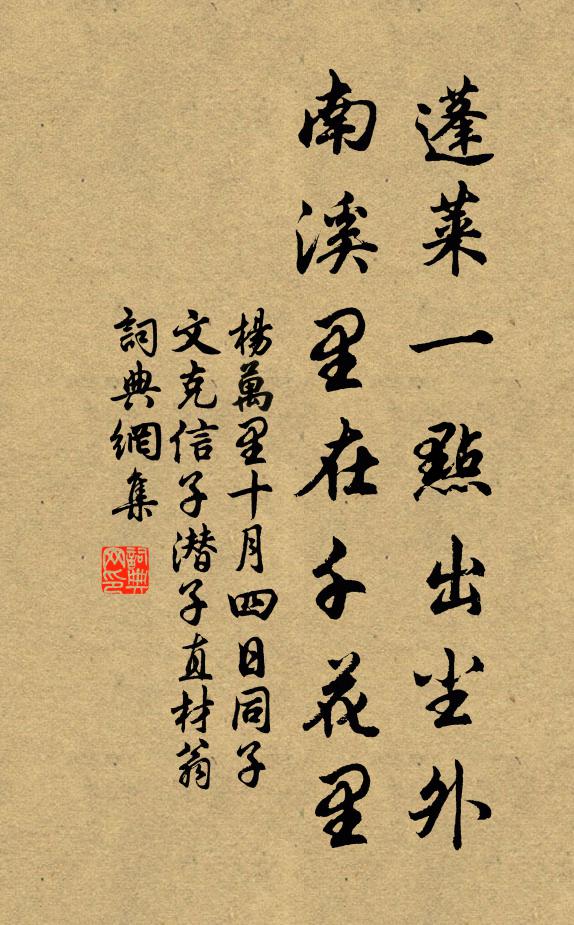 蓬萊一點出尘外
南溪里在千花里
楊萬里十月四日同子
文克信子潛子直材翁
詞典網集
詞典
网印